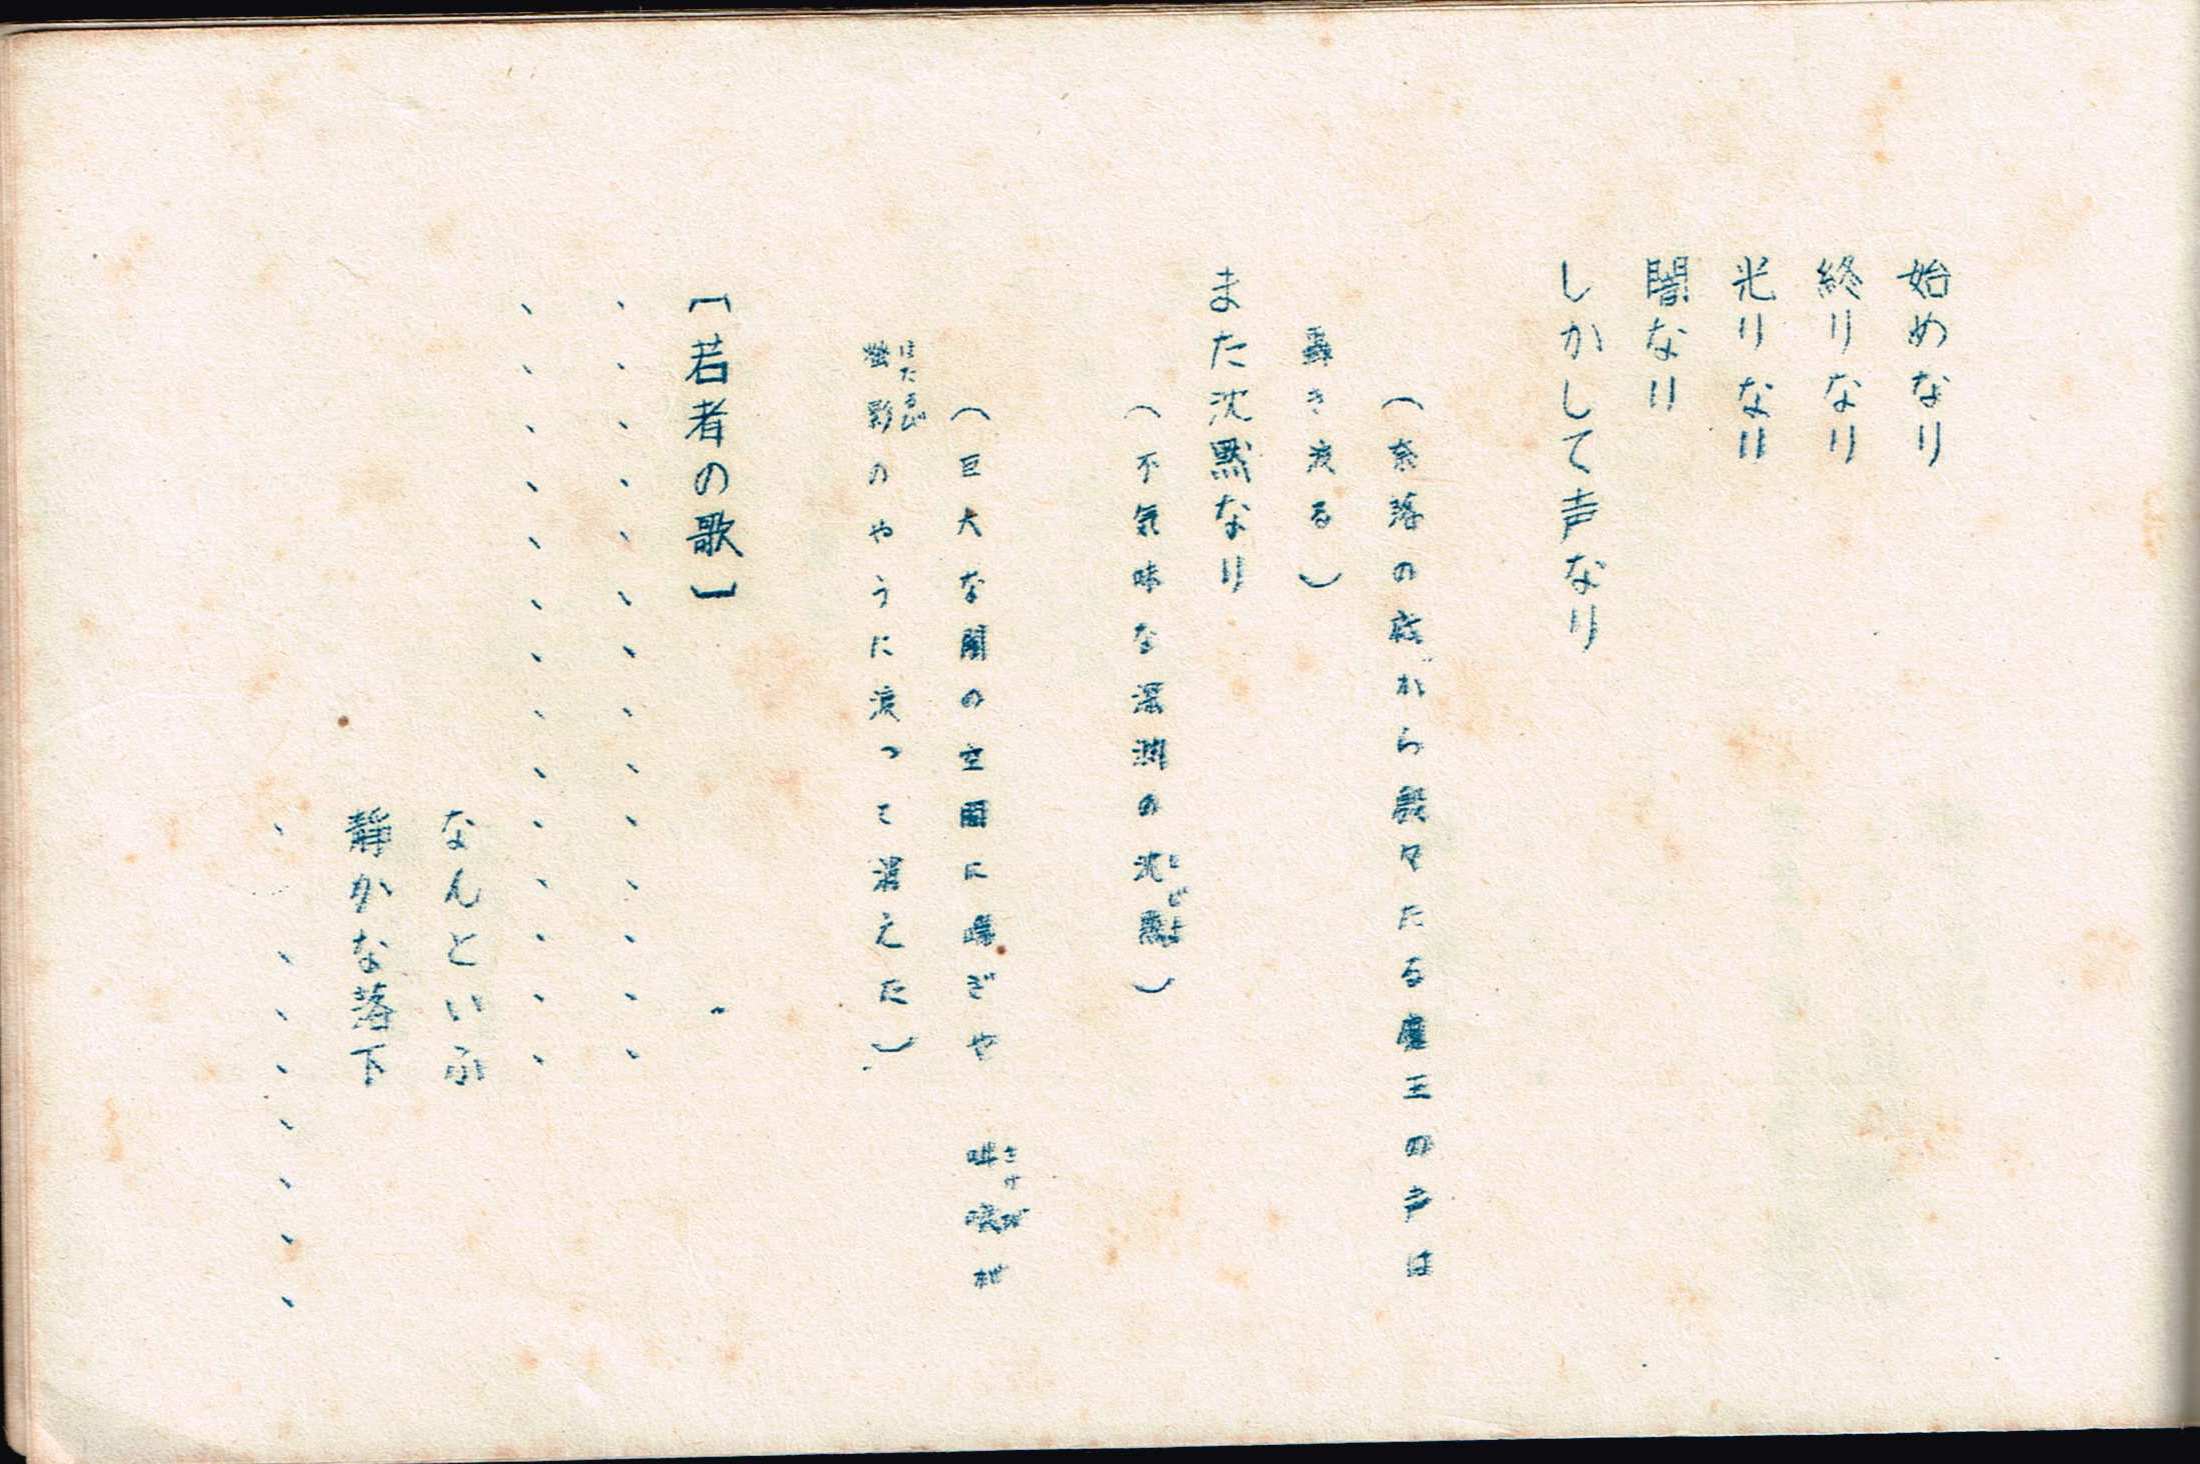 始めなり
終りなり
光りなり
闇なり
しかして声なり
（奈落の底から殷々たる魔王の声は
轟き渡る）
また沈黙なり
（不気味な深淵の沈黙）
（巨大な闇の空間に幽ぎや 叫喚が
螢影のやうに渡つて消えた）
ほたるび
［若者の歌］
、、、、、、、、、、、、、、
、、、、、、、、、、、、、、
なんといふ
靜かな落下
、、、、、、、、